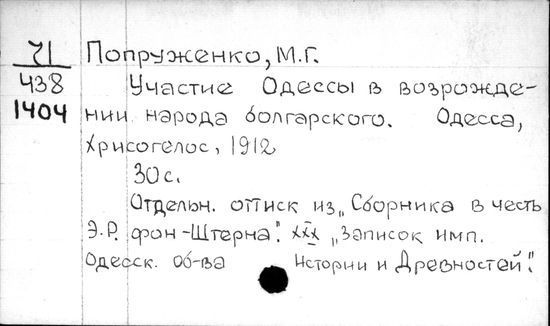 71
438
1404
Попруженко, М.Г.
Участие Одессы в возрожде-
нии народа болгарского. Одесса,
Хрисогелос, 1912
30 с.
Отдельн. оттиск из „Сборника в честь
Э.Р. фон-Штерна". XXX „Записок имп.
Одесск. об-ва Истории и Древностей".